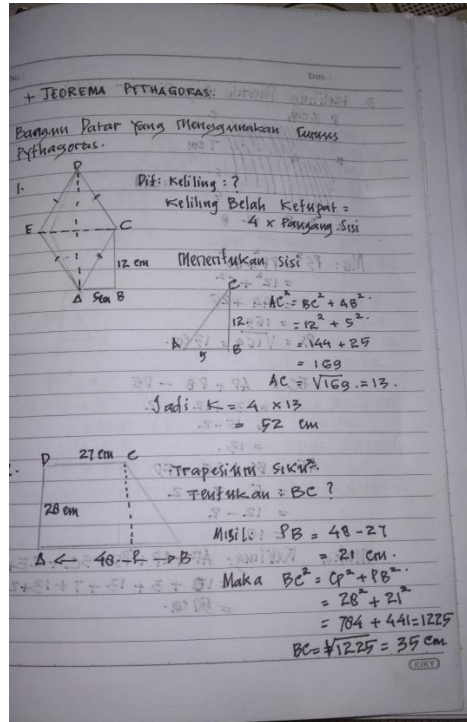 No.: Date.:
+ TEOREMA PYTHAGORAS.
Bangun Datar Yang Menggunakan Rumus
Pythagoras.
1.
D
E C
12 cm
A 5cm B
Dit: Keliling : ?
Keliling Belah Ketupat =
4 x Panjang Sisi
Menentukan sisi
C
12
A 5 B
AC² = BC² + AB²
= 12² + 5²
= 144 + 25
= 169
AC = √169 = 13.
Jadi K = 4 x 13
= 52 cm
D 27 cm C
28 cm
A ← 48 P → B
Trapesium siku²
Tentukan : BC ?
Misil : PB = 48 - 27
= 21 cm.
Maka BC² = CP² + PB²
= 28² + 21²
= 784 + 441 = 1225
BC = √1225 = 35 cm
KIKY